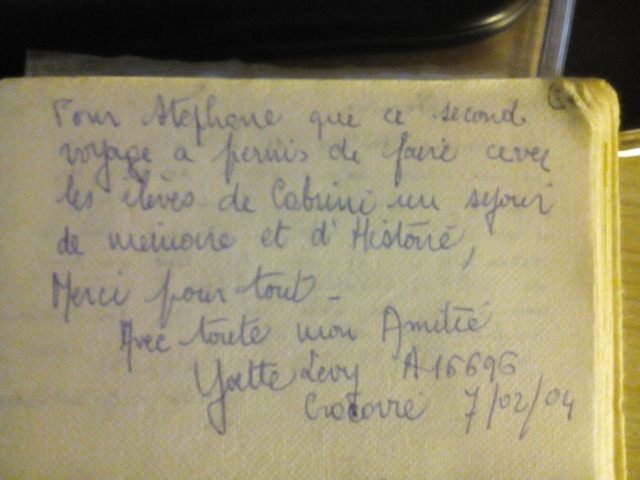 Pour Stephane que ce second
voyage a permis de faire avec
les élèves de Cabrini un sejour
de memoire et d'Histoire,
Merci pour tout -
Avec toute mon Amitié
Yvette Levy A16696
Cracovie 7/02/04